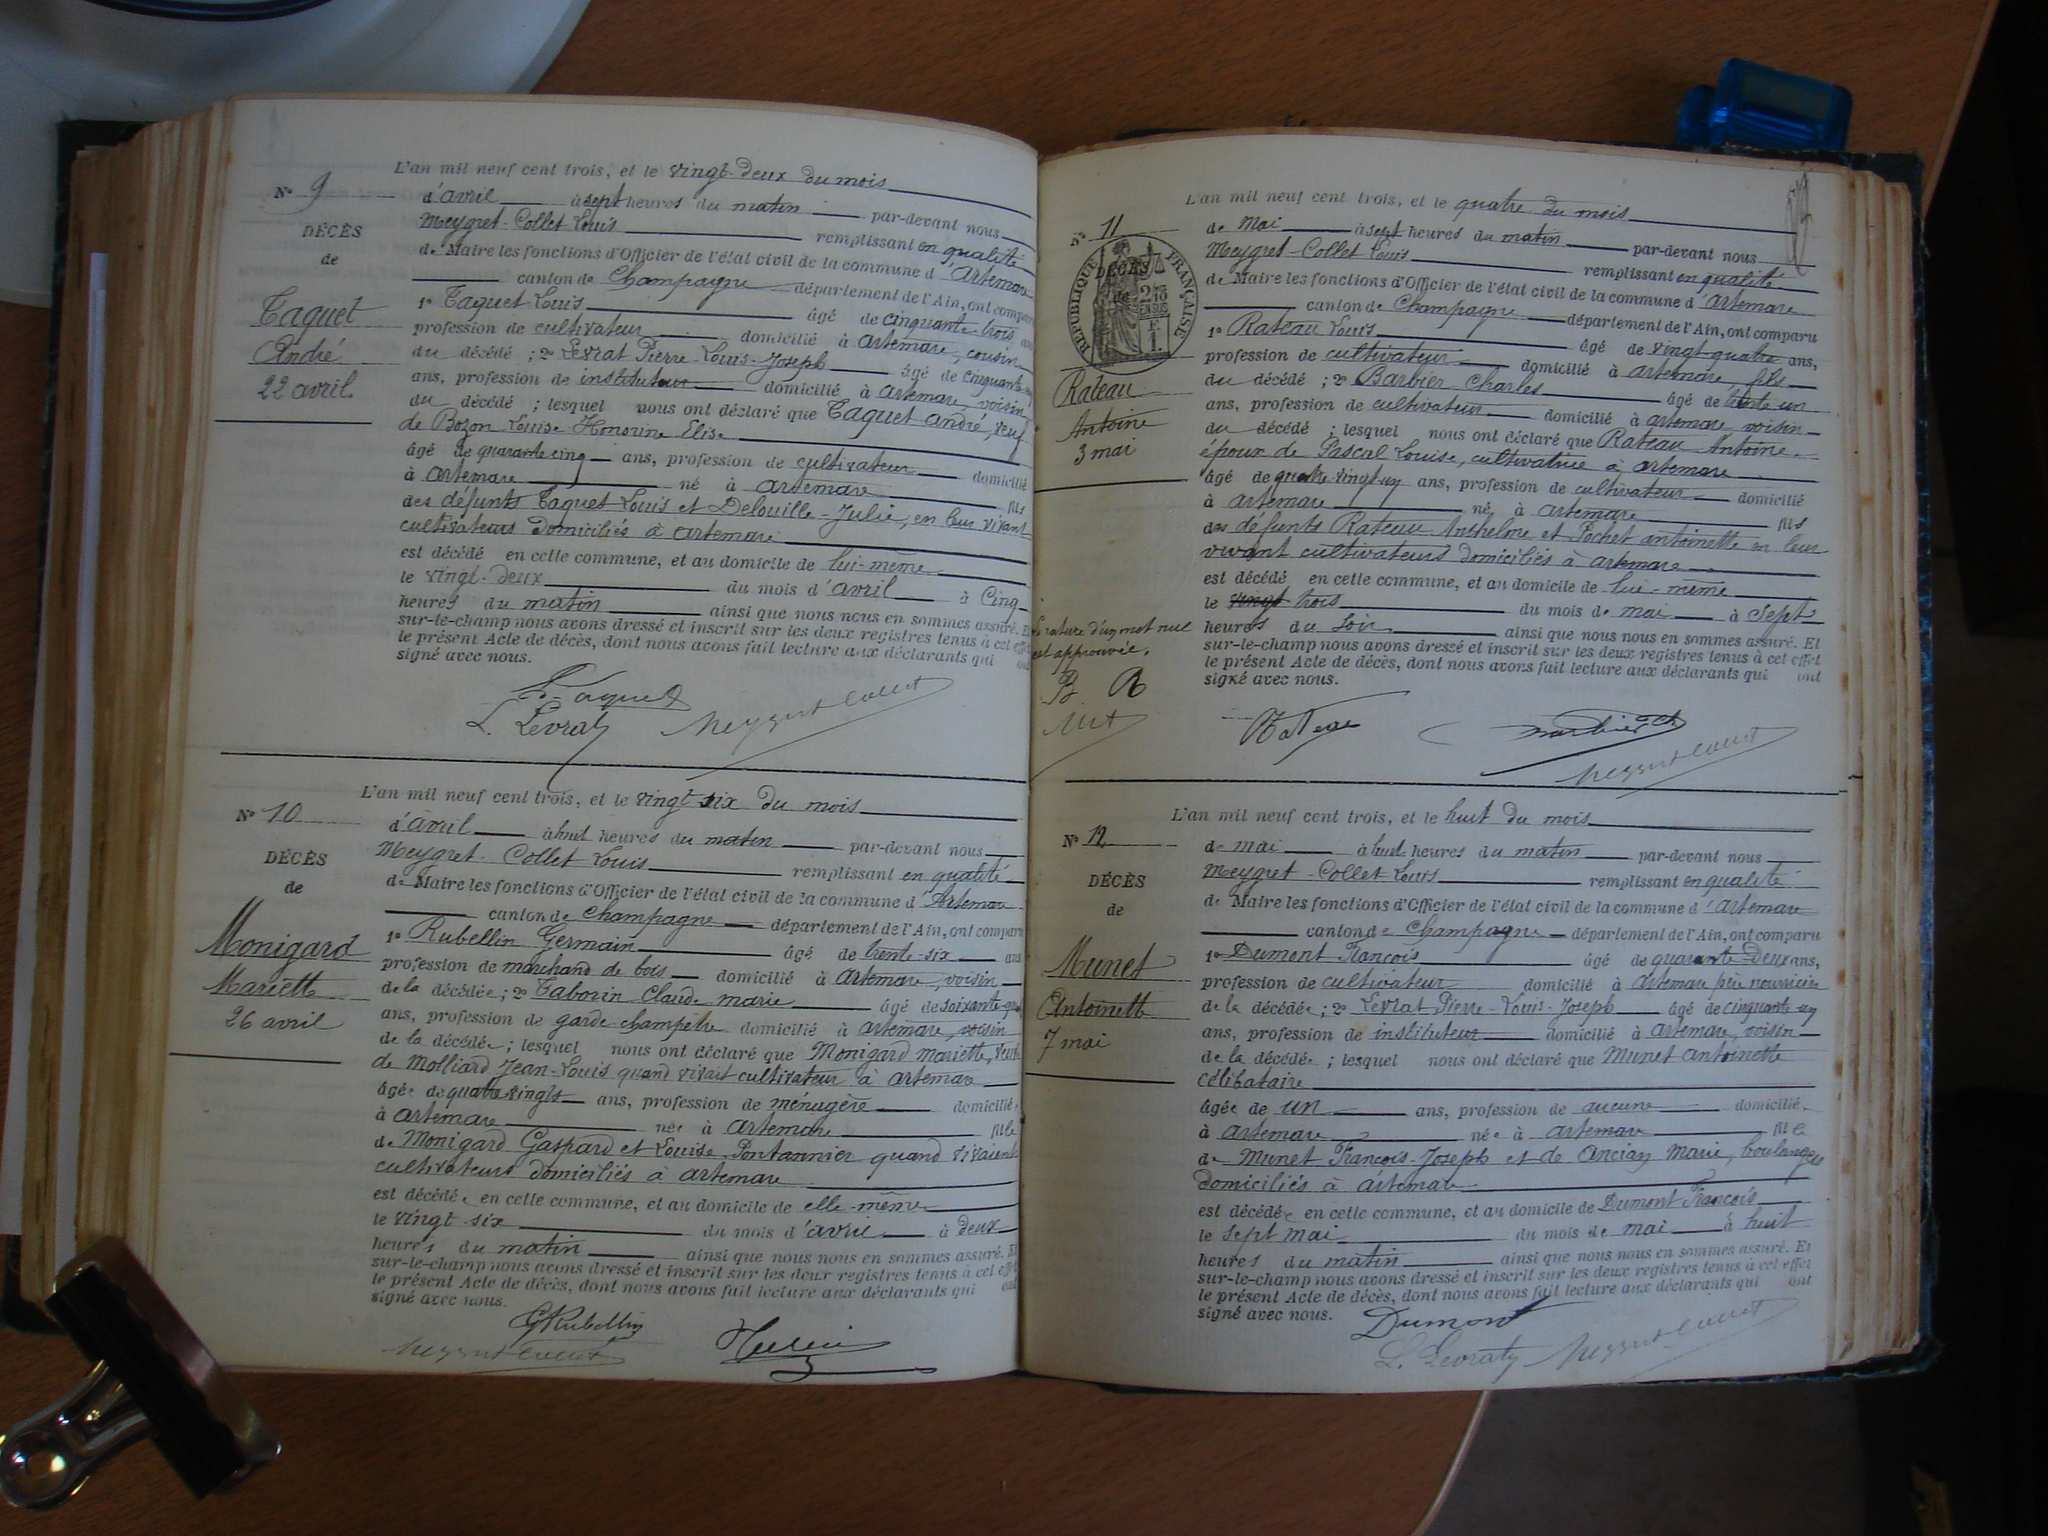 L'an mil neuf cent trois, et le vingt-deux du mois
N° 9
d'avril à sept heures du matin par-devant nous
DÉCÈS
de
Taquet
André
22 avril
Meygret-Collet Louis remplissant en qualité
de Maire les fonctions d'Officier de l'état civil de la commune d'Artemare
canton de Champagne département de l'Ain, ont comparu
1° Taquet Louis âgé de cinquante-trois
profession de cultivateur domicilié à Artemare, cousin
du décédé ; 2° Levrat Pierre-Louis-Joseph âgé de cinquante
ans, profession de instituteur domicilié à Artemare voisin
du décédé ; lesquel nous ont déclaré que Taquet André, veuf
de Bozon Louise Honorine Elise
âgé de quarante cinq ans, profession de cultivateur domicilié
à Artemare né à Artemare fils
des défunts Taquet Louis et Delouille-Julie, en leur vivant
cultivateurs domiciliés à Artemare
est décédé en cette commune, et au domicile de lui-même
le vingt-deux du mois d'avril à Cinq
heures du matin ainsi que nous nous en sommes assuré. Et
sur-le-champ nous avons dressé et inscrit sur les deux registres tenus à cet effet
le présent Acte de décès, dont nous avons fait lecture aux déclarants qui ont
signé avec nous.
L. Taquet
L. Levrat Meygret-Collet
L'an mil neuf cent trois, et le vingt six du mois
N° 10
d'avril à huit heures du matin par-devant nous
DÉCÈS
de
Monigard
Mariette
26 avril
Meygret-Collet Louis remplissant en qualité
de Maire les fonctions d'Officier de l'état civil de la commune d'Artemare
canton de Champagne département de l'Ain, ont comparu
1° Rubellin Germain âgé de trente-six ans
profession de marchand de bois domicilié à Artemare, voisin
de la décédée ; 2° Taborin Claude marie âgé de soixante
ans, profession de garde-champêtre domicilié à Artemare, voisin
de la décédée ; lesquel nous ont déclaré que Monigard Mariette, veuve
de Molliard Jean-Louis quand vivait cultivateur à Artemare
âgée de quatre-vingts ans, profession de ménagère domicilié
à Artemare née à Artemare fille
de Monigard Gaspard et Louise Pontannier quand vivaient
cultivateurs domiciliés à Artemare
est décédée en cette commune, et au domicile de elle-même
le vingt-six du mois d'avril à deux
heures du matin ainsi que nous nous en sommes assuré. Et
sur-le-champ nous avons dressé et inscrit sur les deux registres tenus à cet effet
le présent Acte de décès, dont nous avons fait lecture aux déclarants qui ont
signé avec nous.
G Rubellin
Meygret-Collet
L'an mil neuf cent trois, et le quatre du mois
N° 11
de Mai à sept heures du matin par-devant nous
RÉPUBLIQUE FRANÇAISE
DÉCÈS
de
Rateau
Antoine
3 mai
Meygret-Collet Louis remplissant en qualité
de Maire les fonctions d'Officier de l'état civil de la commune d'Artemare
canton de Champagne département de l'Ain, ont comparu
1° Rateau Louis âgé de vingt-quatre ans,
profession de cultivateur domicilié à Artemare fils
du décédé ; 2° Barbier Charles âgé de trente un
ans, profession de cultivateur domicilié à Artemare voisin
du décédé ; lesquel nous ont déclaré que Rateau Antoine,
époux de Pascal Louise, cultivatrice à Artemare
âgé de quatre-vingt-un ans, profession de cultivateur domicilié
à Artemare né à Artemare fils
des défunts Rateau Anthelme et Pochet Antoinette en leur
vivant cultivateurs domiciliés à Artemare
est décédé en cette commune, et au domicile de lui-même
le vingt trois du mois de mai à sept
heures du soir ainsi que nous nous en sommes assuré. Et
sur-le-champ nous avons dressé et inscrit sur les deux registres tenus à cet effet
le présent Acte de décès, dont nous avons fait lecture aux déclarants qui ont
signé avec nous.
La rature d'un mot nul
est approuvée.
B R
Rateau Barbier Ch
Meygret-Collet
L'an mil neuf cent trois, et le huit du mois
N° 12
de mai à huit heures du matin par-devant nous
DÉCÈS
de
Munet
Antoinette
7 mai
Meygret-Collet Louis remplissant en qualité
de Maire les fonctions d'Officier de l'état civil de la commune d'Artemare
canton de Champagne département de l'Ain, ont comparu
1° Dumont François âgé de quarante-deux ans,
profession de cultivateur domicilié à Artemare père nourricier
de la décédée ; 2° Levrat Pierre-Louis-Joseph âgé de cinquante-un
ans, profession de instituteur domicilié à Artemare, voisin
de la décédée ; lesquel nous ont déclaré que Munet Antoinette
célibataire
âgée de un ans, profession de aucune domicilié
à Artemare née à Artemare fille
de Munet François-Joseph et de Ancian Marie, boulangers
domiciliés à Artemare
est décédée en cette commune, et au domicile de Dumont François
le sept mai du mois de mai à huit
heures du matin ainsi que nous nous en sommes assuré. Et
sur-le-champ nous avons dressé et inscrit sur les deux registres tenus à cet effet
le présent Acte de décès, dont nous avons fait lecture aux déclarants qui ont
signé avec nous.
Dumont
L. Levrat Meygret-Collet